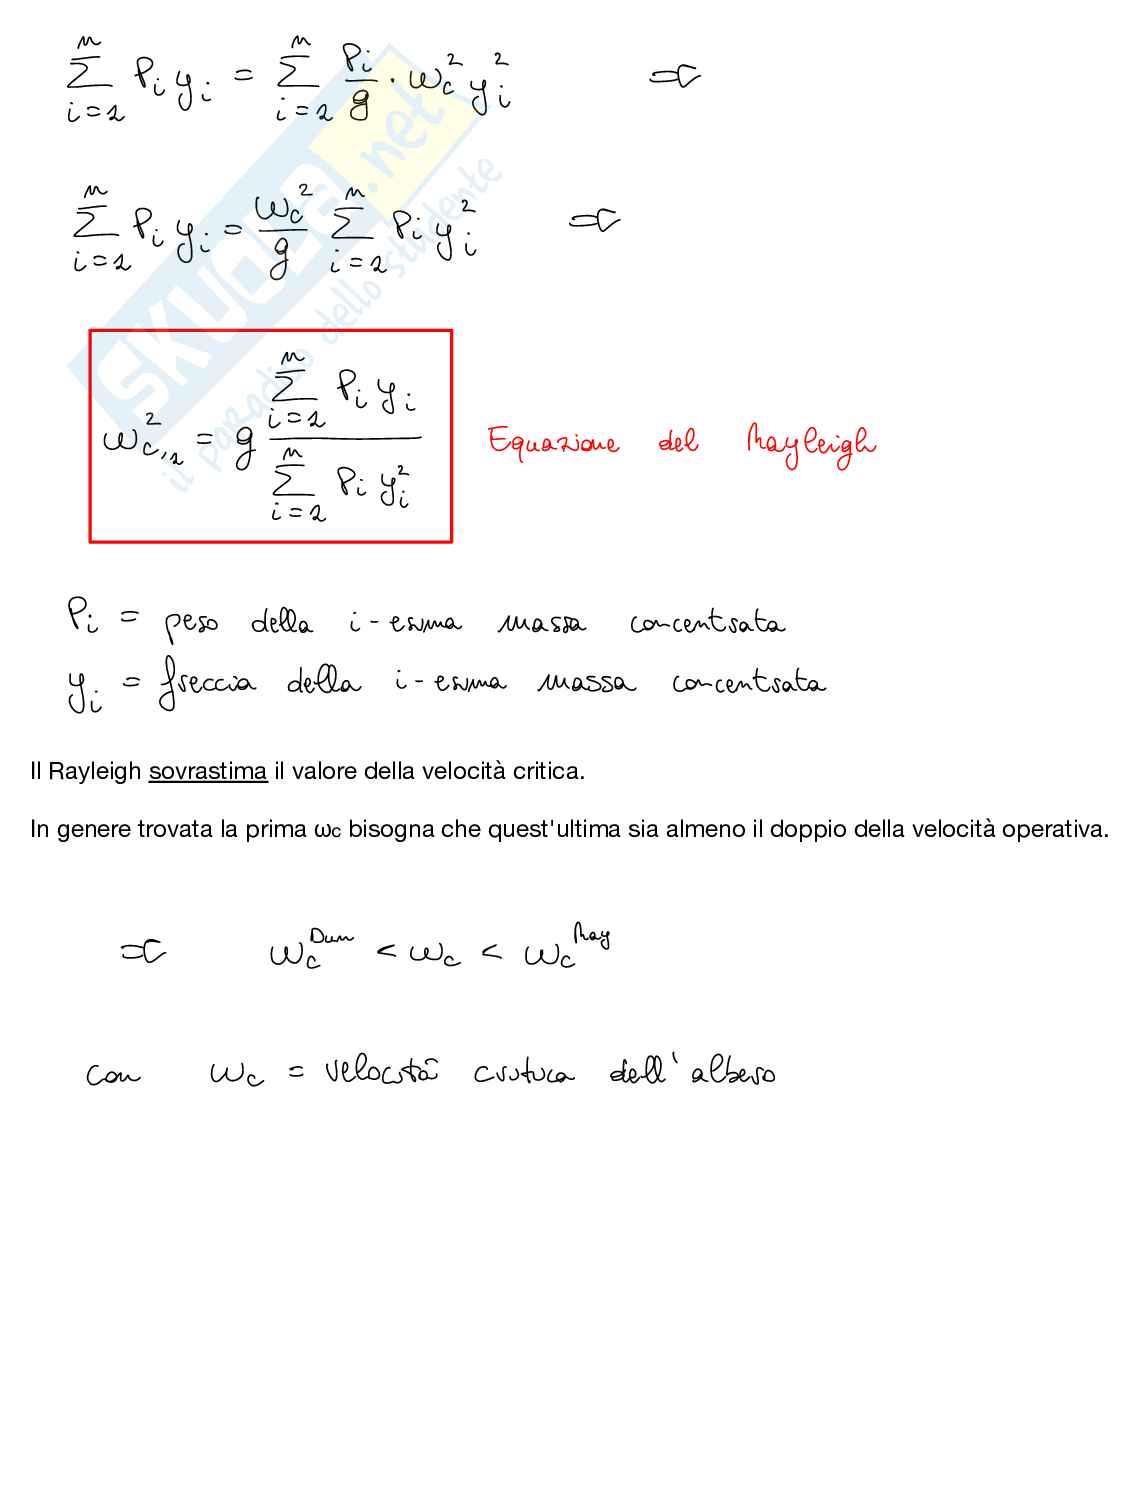 ∑_{i=1}^{n} P_i y_i = ∑_{i=1}^{n} P_i/g · ω_c² y_i² ⇒
∑_{i=1}^{n} P_i y_i = ω_c²/g ∑_{i=1}^{n} P_i y_i² ⇒
ω_{c,1}² = g (∑_{i=1}^{n} P_i y_i) / (∑_{i=1}^{n} P_i y_i²) Equazione del Rayleigh
P_i = peso della i-esima massa concentrata
y_i = freccia della i-esima massa concentrata
Il Rayleigh sovrastima il valore della velocità critica.
In genere trovata la prima ωc bisogna che quest'ultima sia almeno il doppio della velocità operativa.
⇒ ω_c^{Dun} < ω_c < ω_c^{Ray}
con ω_c = velocità critica dell'albero
SKUOLA.net
il paradiso dello studente